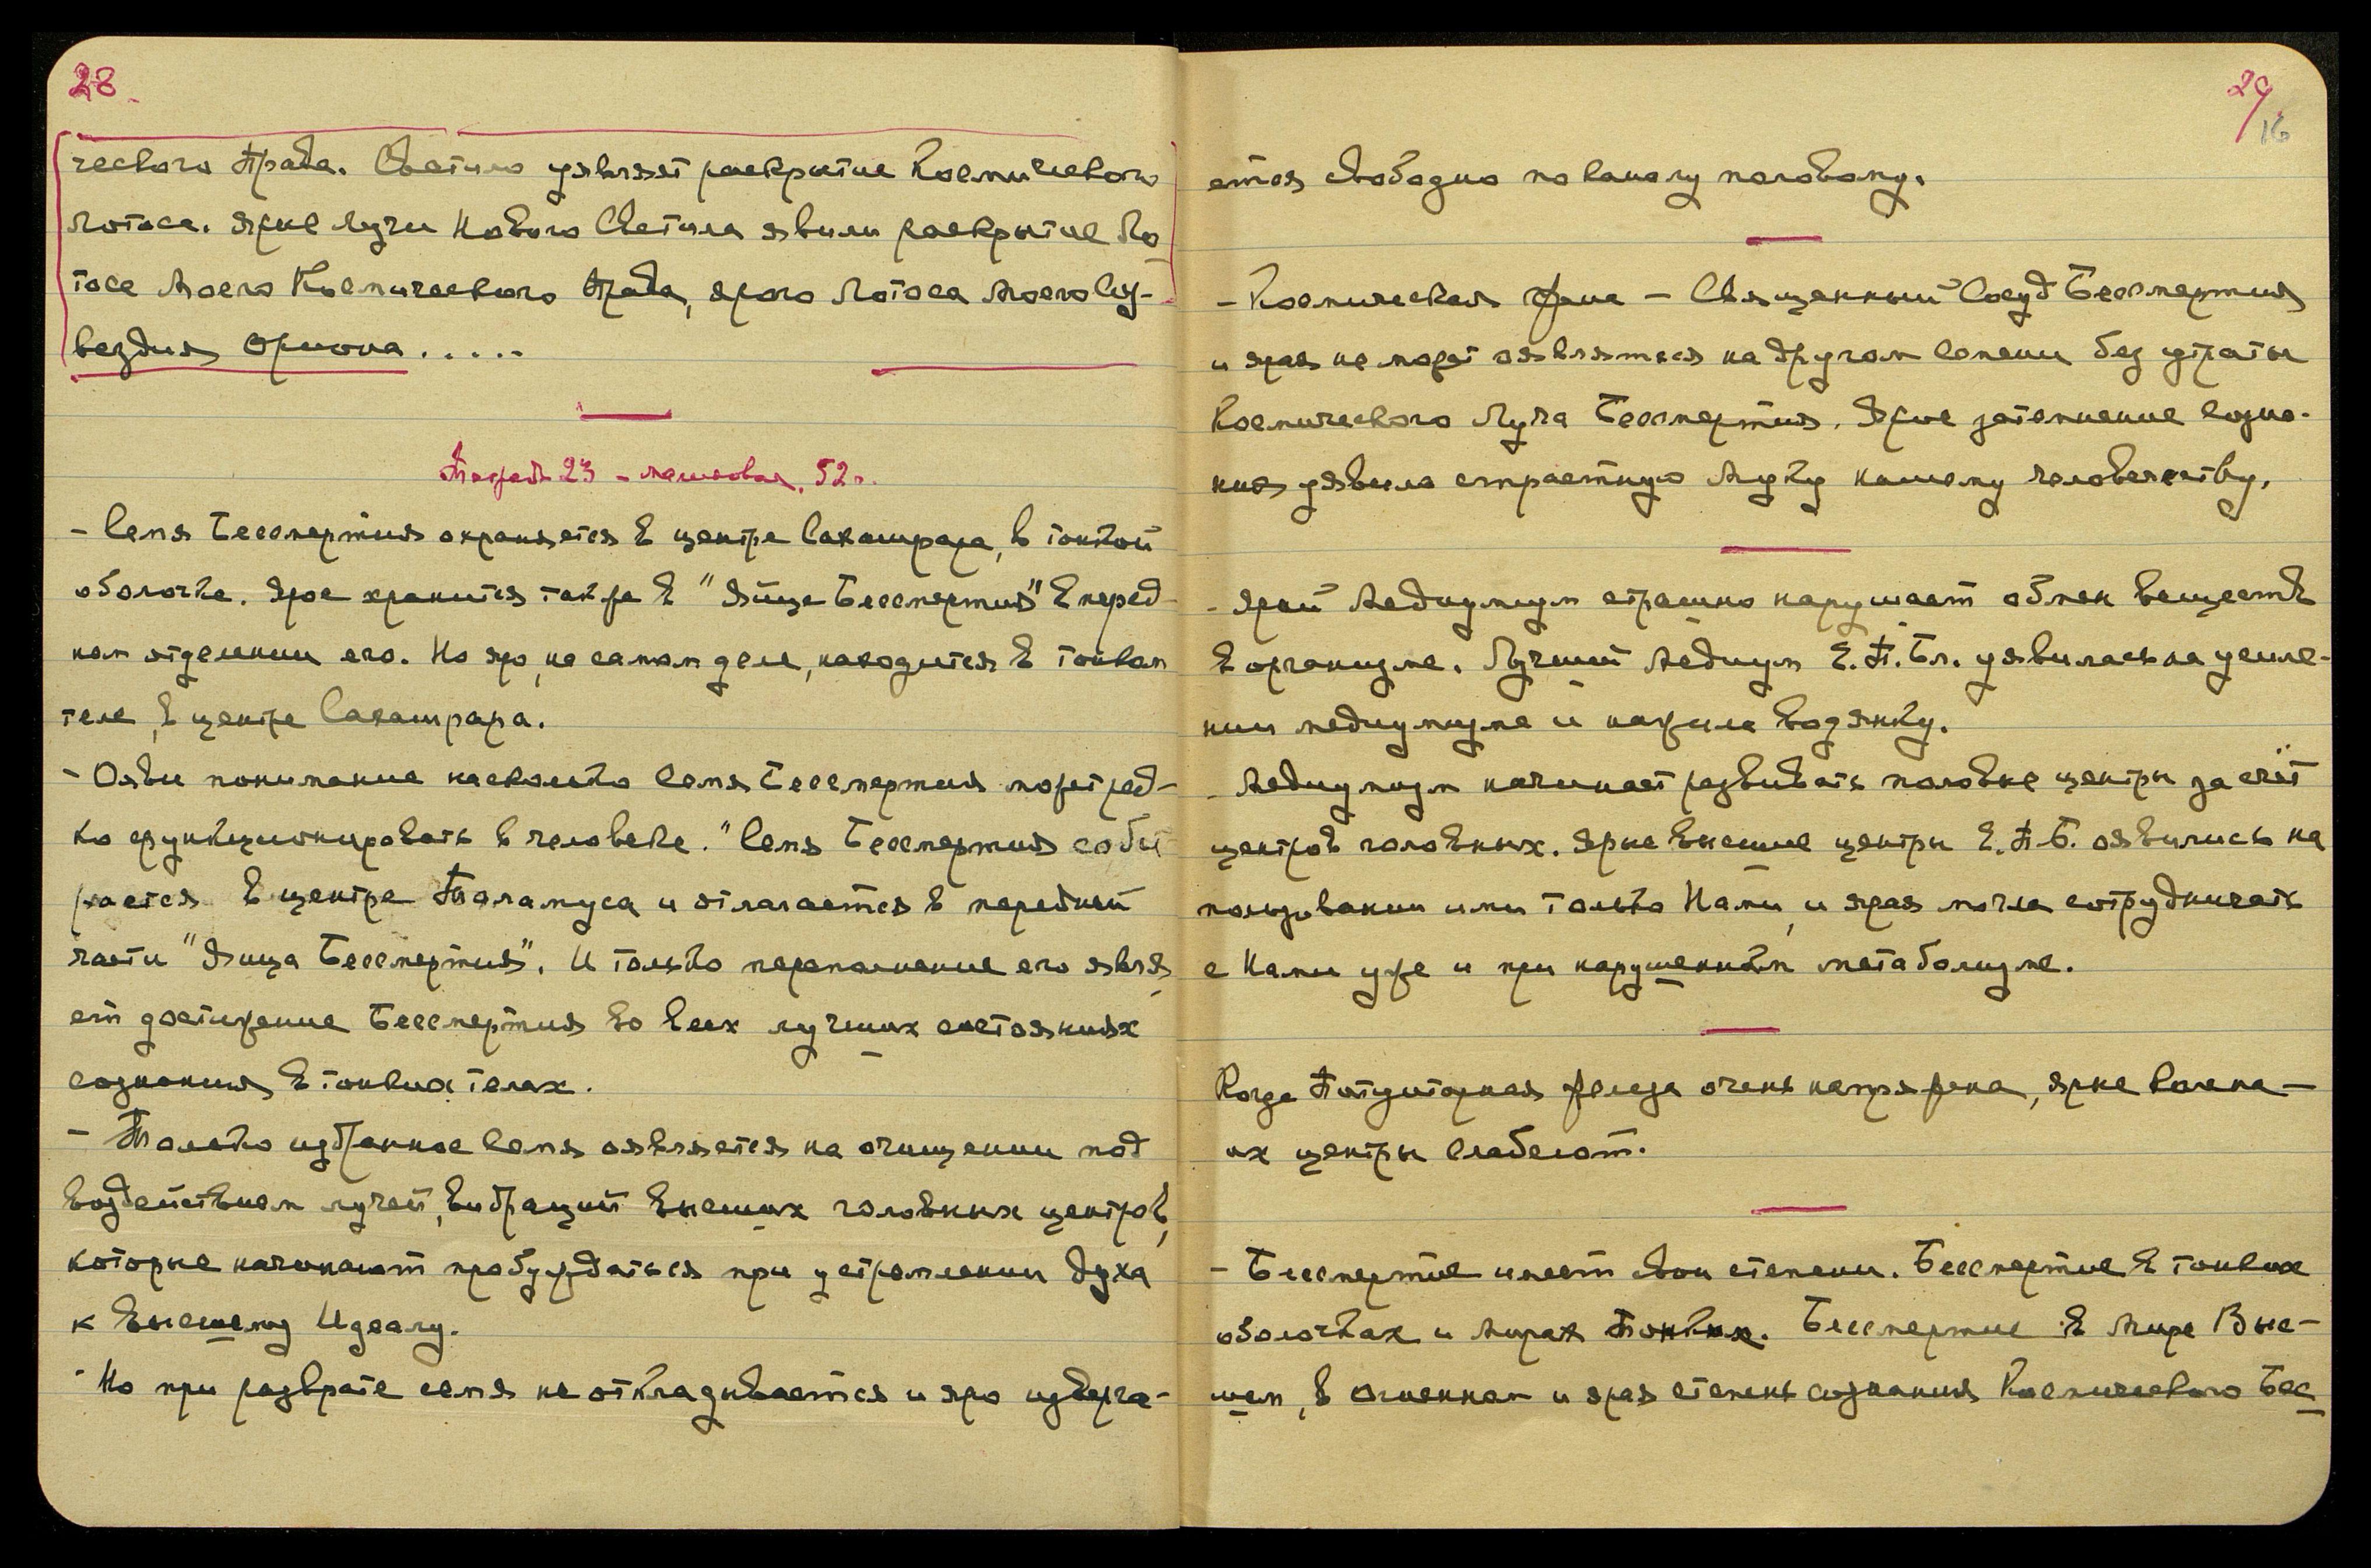 28.
ческого Права. Светило уявляет раскрытие Космического
Лотоса. Ярые Лучи Нового Светила явили раскрытие Ло-
тоса Моего Космического Права, ярого Лотоса Моего Со-
вездия Ориона.....
Тетрадь 23 - 52 г.
- Семя Бессмертия охраняется в центре Сахашрара, в тонкой
оболочке. Ярое хранится также в "Яйце Бессмертия" в перед-
нем отделении его. Но яро, на самом деле, находится в тонком
теле, в центре Сахашрара.
- Ояви понимание насколько Семя Бессмертия может ред-
ко функционировать в человеке. "Семя Бессмертия соби-
рается в центре Таламуса и отлагается в передней
части "Яйца Бессмертия". И только переполнение его явля-
ет достижение Бессмертия во всех лучших состояниях
сознания в тонких телах.
- Только избранное Семя оявляется на очищении под
воздействием лучей, вибраций высших головных центров,
которые начинают пробуждаться при устремлении духа
к Высшему Идеалу.
- Но при разврате семя не откладывается и яро изверга-
29/16
ется свободно по каналу половому.
- Космическая Жена - Священный Сосуд Бессмертия
и ярая не может оявляться на другом семени без утраты
Космического Луча Бессмертия. Ярое затемнение созна-
ния уявило страстную Муку нашему человечеству.
- Ярый Медиумизм страшно нарушает обмен веществ
в организме. Лучший Медиум Е.П.Бл. уявилась на усиле-
нии медиумизма и нажила водянку.
- Медиумизм начинает развивать половые центры за счёт
центров головных. Ярые высшие центры Е.П.Б. оявились на
пользовании ими только Нами, и ярая могла сотрудничать
с Нами уже и при нарушенном метаболизме.
Когда Питуиторная железа очень напряжена, ярые колена-
их центры слабеют.
- Бессмертие имеет свои степени. Бессмертие в тонких
оболочках и Мирах Тонких. Бессмертие в Мире Выс-
шем, в Огненном и ярая степень сознания Космического Бес-